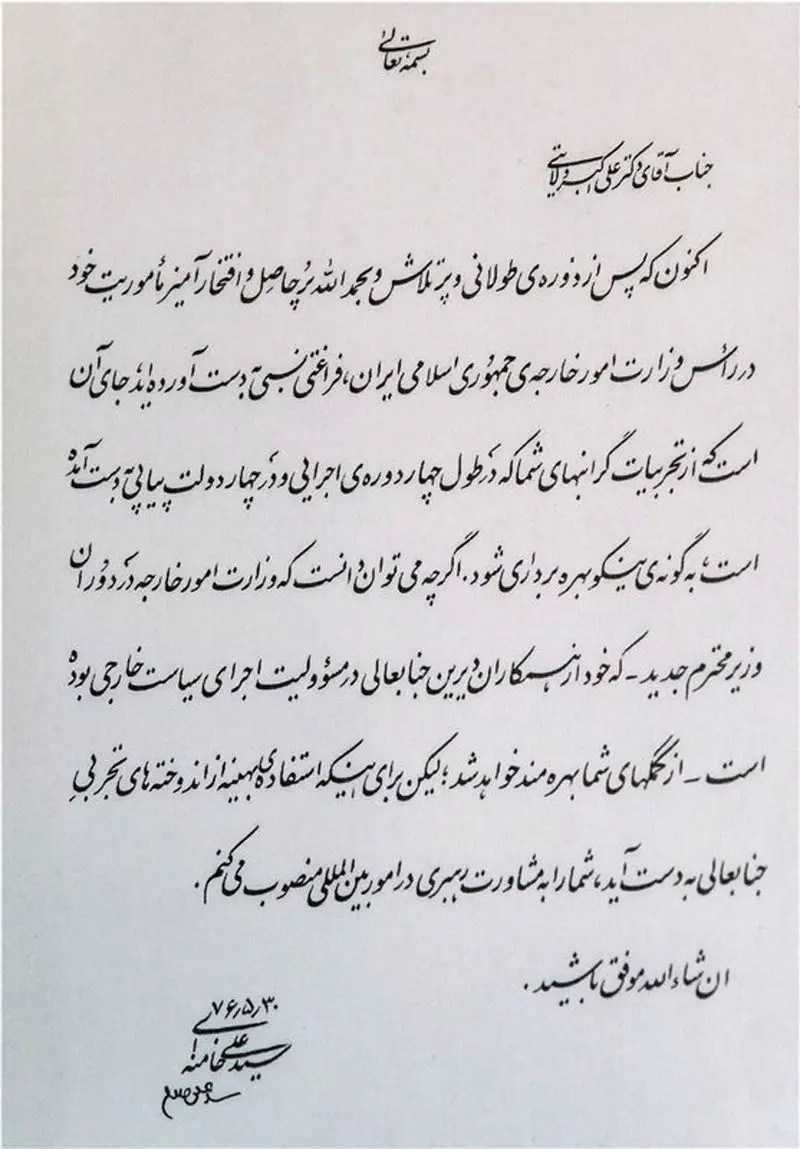 بسمه تعالی
جناب آقای دکتر علی اکبر ولایتی
اکنون که پس از دوره‌ی طولانی و پرتلاش و بحمدالله پرحاصل و افتخارآمیز مأموریت خود
در رأس وزارت امور خارجه‌ی جمهوری اسلامی ایران، فراغتی نسبی به دست آورده‌اید جای آن
است که از تجربیات گرانبهای شما که در طول چهار دوره‌ی اجرایی و در چهار دولت پیاپی به دست آمده
است، به گونه‌ی نیکو بهره برداری شود. اگرچه می توان دانست که وزارت امور خارجه در دوران
وزیر محترم جدید ـ که خود از همکاران دیرین جنابعالی در مسؤولیت اجرای سیاست خارجی بوده
است ـ از کمکهای شما بهره مند خواهد شد؛ لیکن برای اینکه استفاده‌ی بهینه از اندوخته های تجربیِ
جنابعالی به دست آید، شما را به مشاورت رهبری در امور بین المللی منصوب می کنم.
ان شاءالله موفق باشید.
۷۶٫۵٫۳۰
سید علی خامنه ای